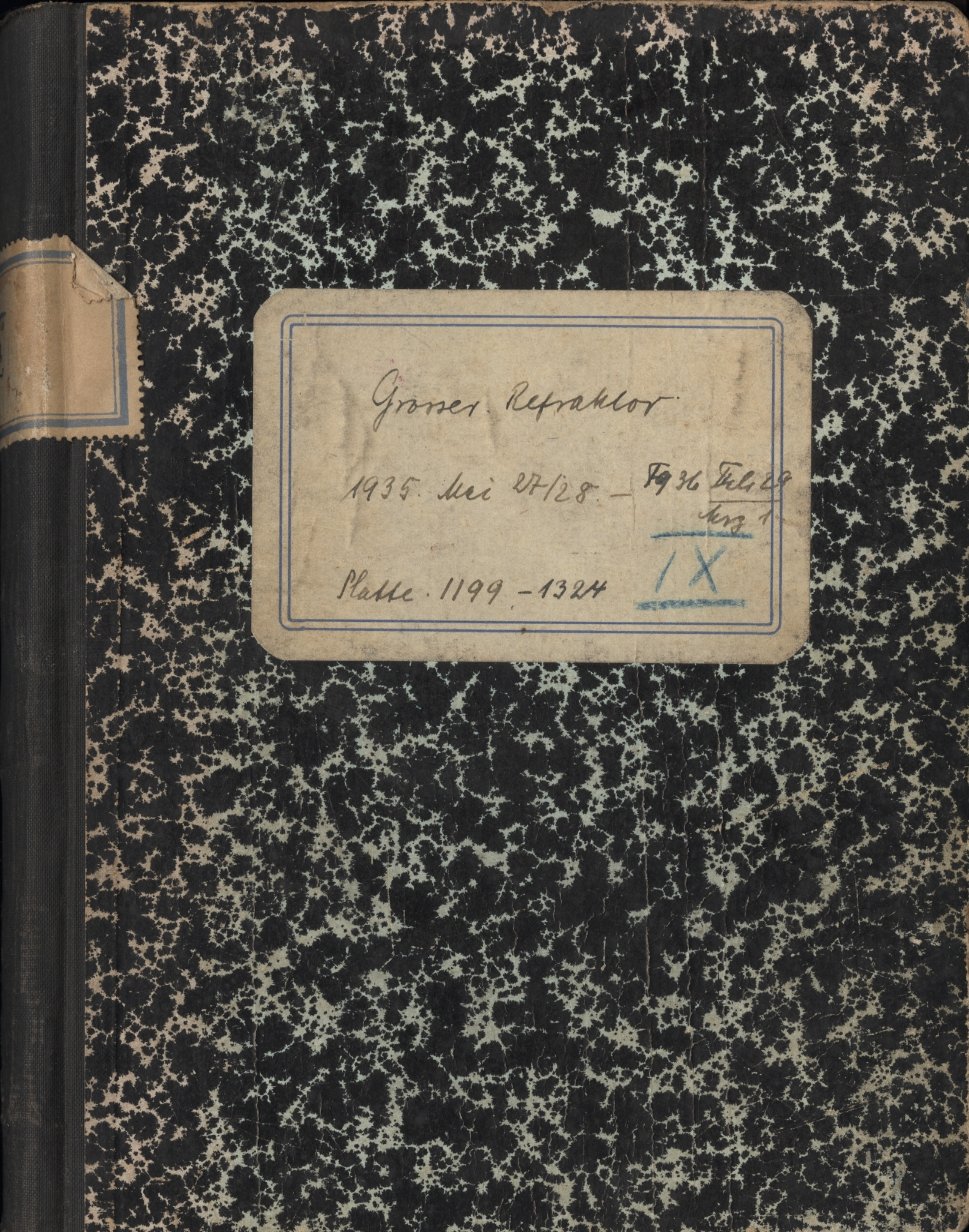 Grosser Refraktor.
1935. Mai 27/28. – 1936 Feb. 29
Mrz 1.
IX
Platte. 1199 – 1324